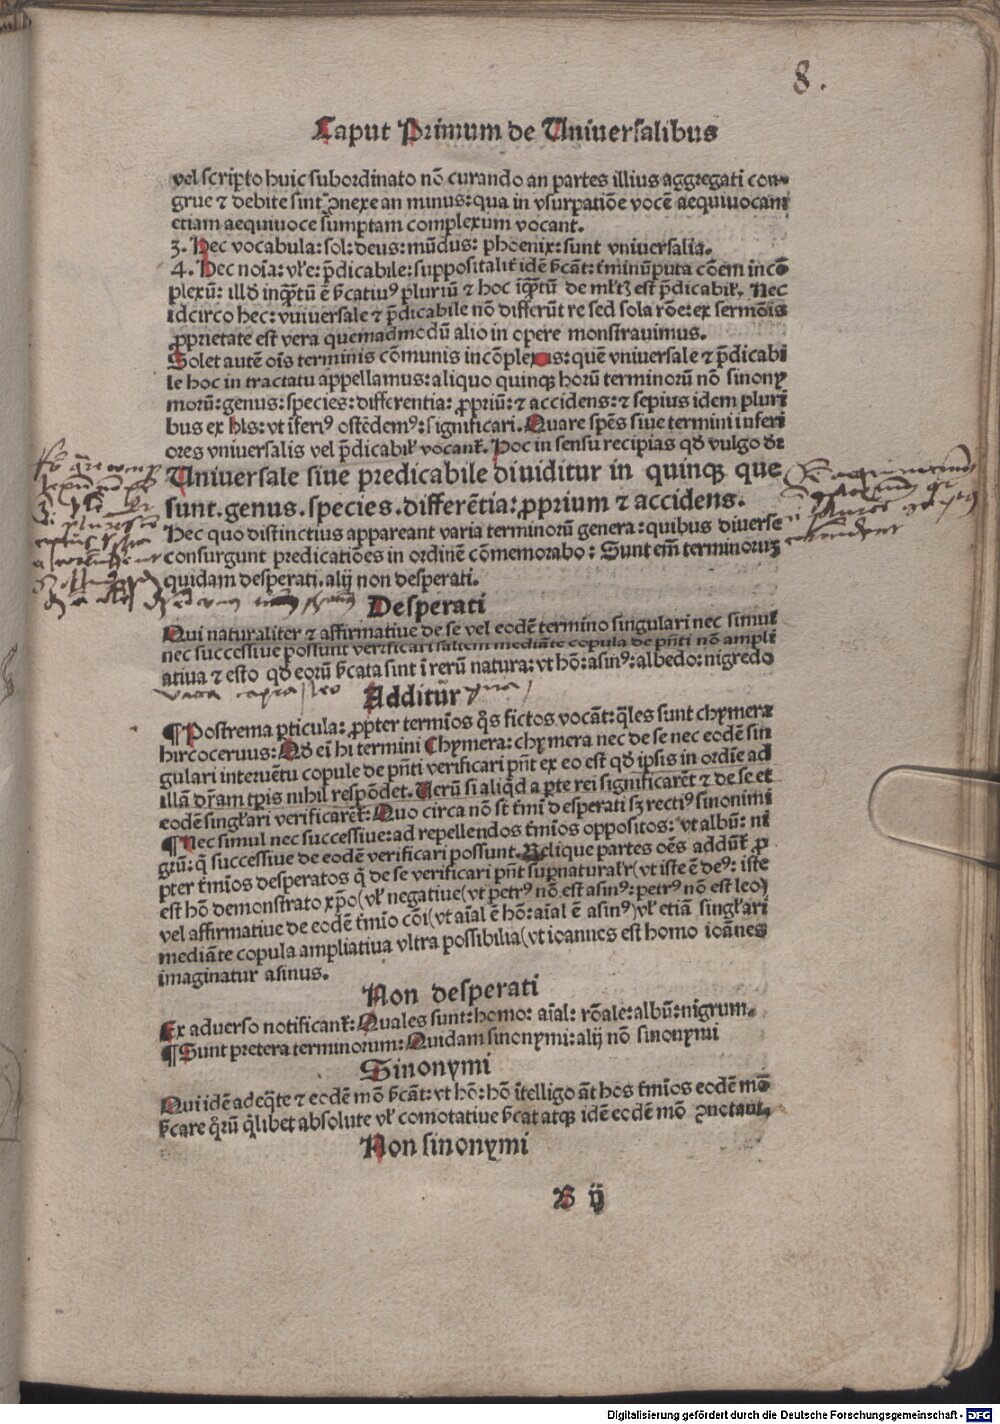 8.
Caput Primum de Uniuersalibus
vel scripto huic subordinato nō curando an partes illius aggregati con-
grue ⁊ debite sint ↄnexe an minus: qua in vsurpatiōe vocē aequiuocam
etiam aequiuoce sumptam complexum vocant.
3. Hec vocabula: sol: deus: mūdus: phoenix: sunt vniuersalia.
4. Hec noīa: vłe: p̄dicabile: suppositalit̄ idē sc̄ant: t̄minū puta cōem incō
plexū: illd̄ inq̄ptū ē sc̄atiuꝰ pluriū ⁊ hoc īq̄ptū de młtꝫ est p̄dicabił. Nec
idcirco hec: vniuersale ⁊ p̄dicabile nō differūt re sed sola rōe: ex sermōis
ꝓprietate est vera quemadmodū alio in opere monstrauimus.
Solet autē oīs terminis cōmunis incōplexus: quē vniuersale ⁊ p̄dicabi
le hoc in tractatu appellamus: aliquo quinqꝫ horū terminorū nō sinony
morū: genus: species: differentia: ꝓpriū: ⁊ accidens: ⁊ sepius idem pluri
bus ex hīs: vt īferiꝰ ostēdemꝰ: significari. Quare sp̄es siue termini inferi
ores vniuersalis vel p̄dicabił vocant̄. Hoc in sensu recipias qd̄ vulgo dr̄
Uniuersale siue predicabile diuiditur in quinqꝫ que
sunt. genus. species. differētia: ꝓprium ⁊ accidens.
Hec quo distinctius appareant varia terminorū genera: quibus diuerse
consurgunt predicatiōes in ordinē cōmemorabo: Sunt em̄ terminoruꝫ
quidam desperati. alij non desperati.
Desperati
Qui naturaliter ⁊ affirmatiue de se vel eodē termino singulari nec simul
nec successiue possunt verificari saltem mediāte copula de p̄nti nō ampli
atiua ⁊ esto qd̄ eorū sc̄ata sint ī rerū natura: vt hō: asinꝰ: albedo: nigredo
Additur
¶ Postrema ꝑticula: ꝓpter termīos q̄s fictos vocāt: q̄les sunt chymera
hircoceruus: Qd̄ ei hi termini Chymera: chymera nec de se nec eodē sin
gulari interuētu copule de p̄nti verificari pn̄t ex eo est qd̄ ipsis in ordīe ad
illā dr̄am tp̄is nihil respōdet. Uerū si aliqd̄ a ꝑte rei significarēt ⁊ de se et
eodē singłari verificarēt̄: Quo circa nō st̄ t̄mi desperati sꝫ rectiꝰ sinonimi
¶ Nec simul nec successiue: ad repellendos t̄mīos oppositos: vt albū: ni
grū: q̄ successiue de eodē verificari possunt. Relique partes oēs addūt̄ ꝓ
pter t̄mīos desperatos q̄ de se verificari pn̄t supnaturalr̄ (vt iste ē deꝰ: iste
est hō demonstrato xp̄o (vł negatiue (vt petrꝰ nō est asinꝰ: petrꝰ nō est leo)
vel affirmatiue de eodē t̄mīo cōi (vt aīal ē hō: aīal ē asinꝰ) vł etiā singłari
mediāte copula ampliatiua vltra possibilia (vt ioannes est homo ioānes
imaginatur asinus.
Non desperati
Ex aduerso notificant̄: Quales sunt: homo: aīal: rōale: albū: nigrum.
¶ Sunt pretera terminorum: Quidam sinonymi: alij nō sinonymi
Sinonymi
Qui idē adeq̄te ⁊ eodē mō sc̄ant: vt hō: hō ītelligo āt hos t̄mīos eodē mō
sc̄are q̄rū q̄libet absolute vł comotatiue sc̄at atqꝫ idē eodē mō ↄnotant.
Non sinonymi
B ij
Digitalisierung gefördert durch die Deutsche Forschungsgemeinschaft - DFG